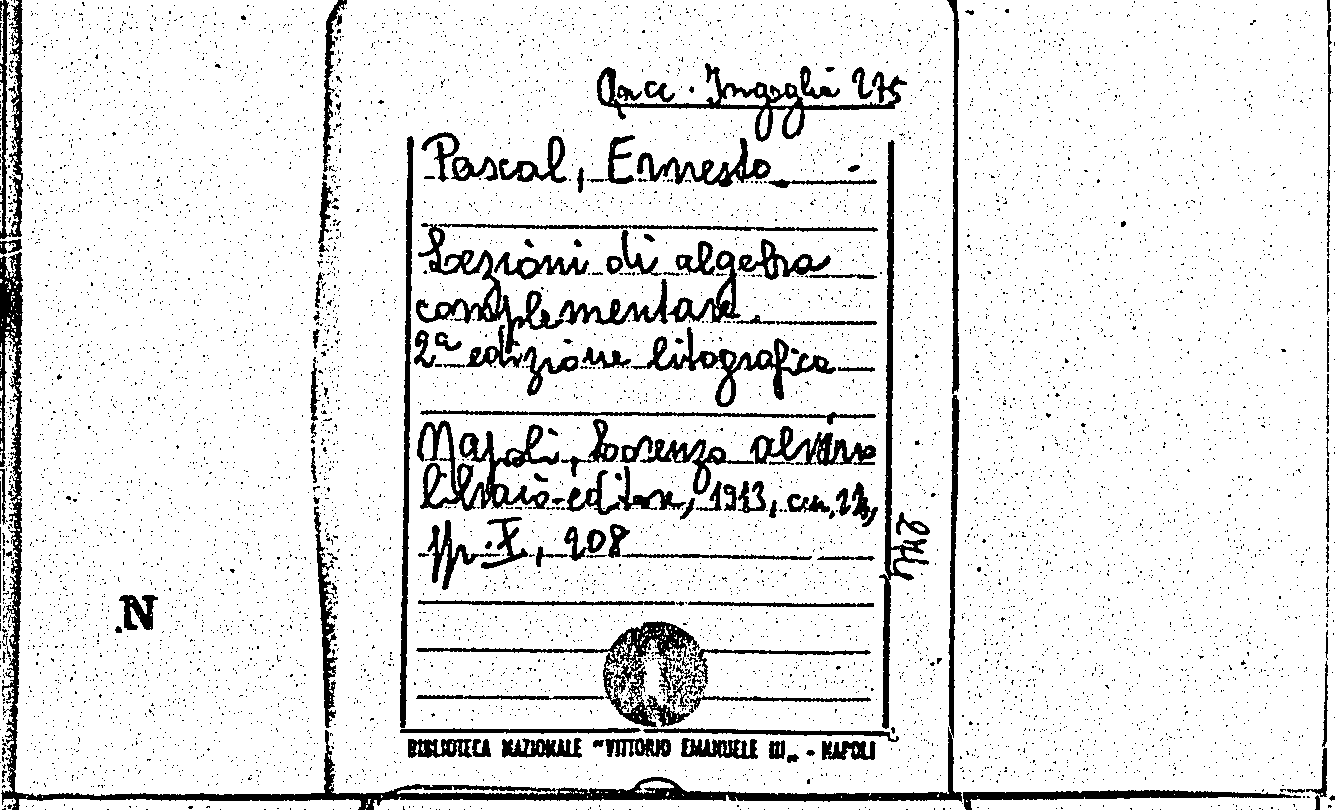 Racc. Ingoglia 275
Pascal, Ernesto.
Lezioni di algebra
complementare.
2ª edizione litografica
Napoli, Lorenzo Alvino
libraio-editore, 1913, cm,
pp. X, 208
N
BIBLIOTECA NAZIONALE "VITTORIO EMANUELE III„ - NAPOLI